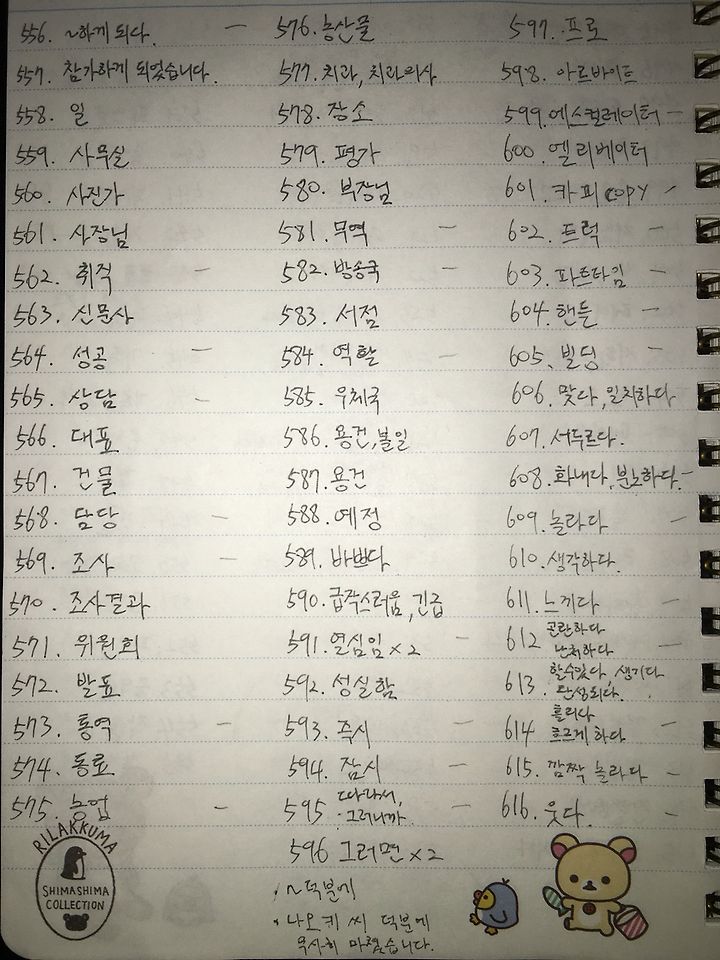 556. ~하게 되다.
557. 참가하게 되었습니다.
558. 일
559. 사무실
560. 사진가
561. 사장님
562. 취직
563. 신문사
564. 성공
565. 상담
566. 대표
567. 건물
568. 담당
569. 조사
570. 조사결과
571. 위원회
572. 발표
573. 통역
574. 동료
575. 농업
576. 농산물
577. 치과, 치과의사
578. 장소
579. 평가
580. 부장님
581. 무역
582. 방송국
583. 서점
584. 역할
585. 우체국
586. 용건, 볼일
587. 용건
588. 예정
589. 바쁘다
590. 급작스러움, 긴급
591. 열심임 × 2
592. 성실함
593. 즉시
594. 잠시
595 따라서,
그러니까
596 그러면 × 2
· ~덕분에
· 나오키 씨 덕분에
무사히 마쳤습니다.
597. 프로
598. 아르바이트
599. 에스컬레이터
600. 엘리베이터
601. 카피 copy
602. 트럭
603. 파트타임
604. 핸들
605. 빌딩
606. 맞다, 일치하다
607. 서두르다.
608. 화내다, 분노하다.
609. 놀라다
610. 생각하다.
611. 느끼다
612 곤란하다
난처하다
613. 할수있다, 생기다
완성되다.
614 흘리다
흐르게 하다
615. 깜짝 놀라다
616. 웃다.
RILAKKUMA
SHIMASHIMA
COLLECTION